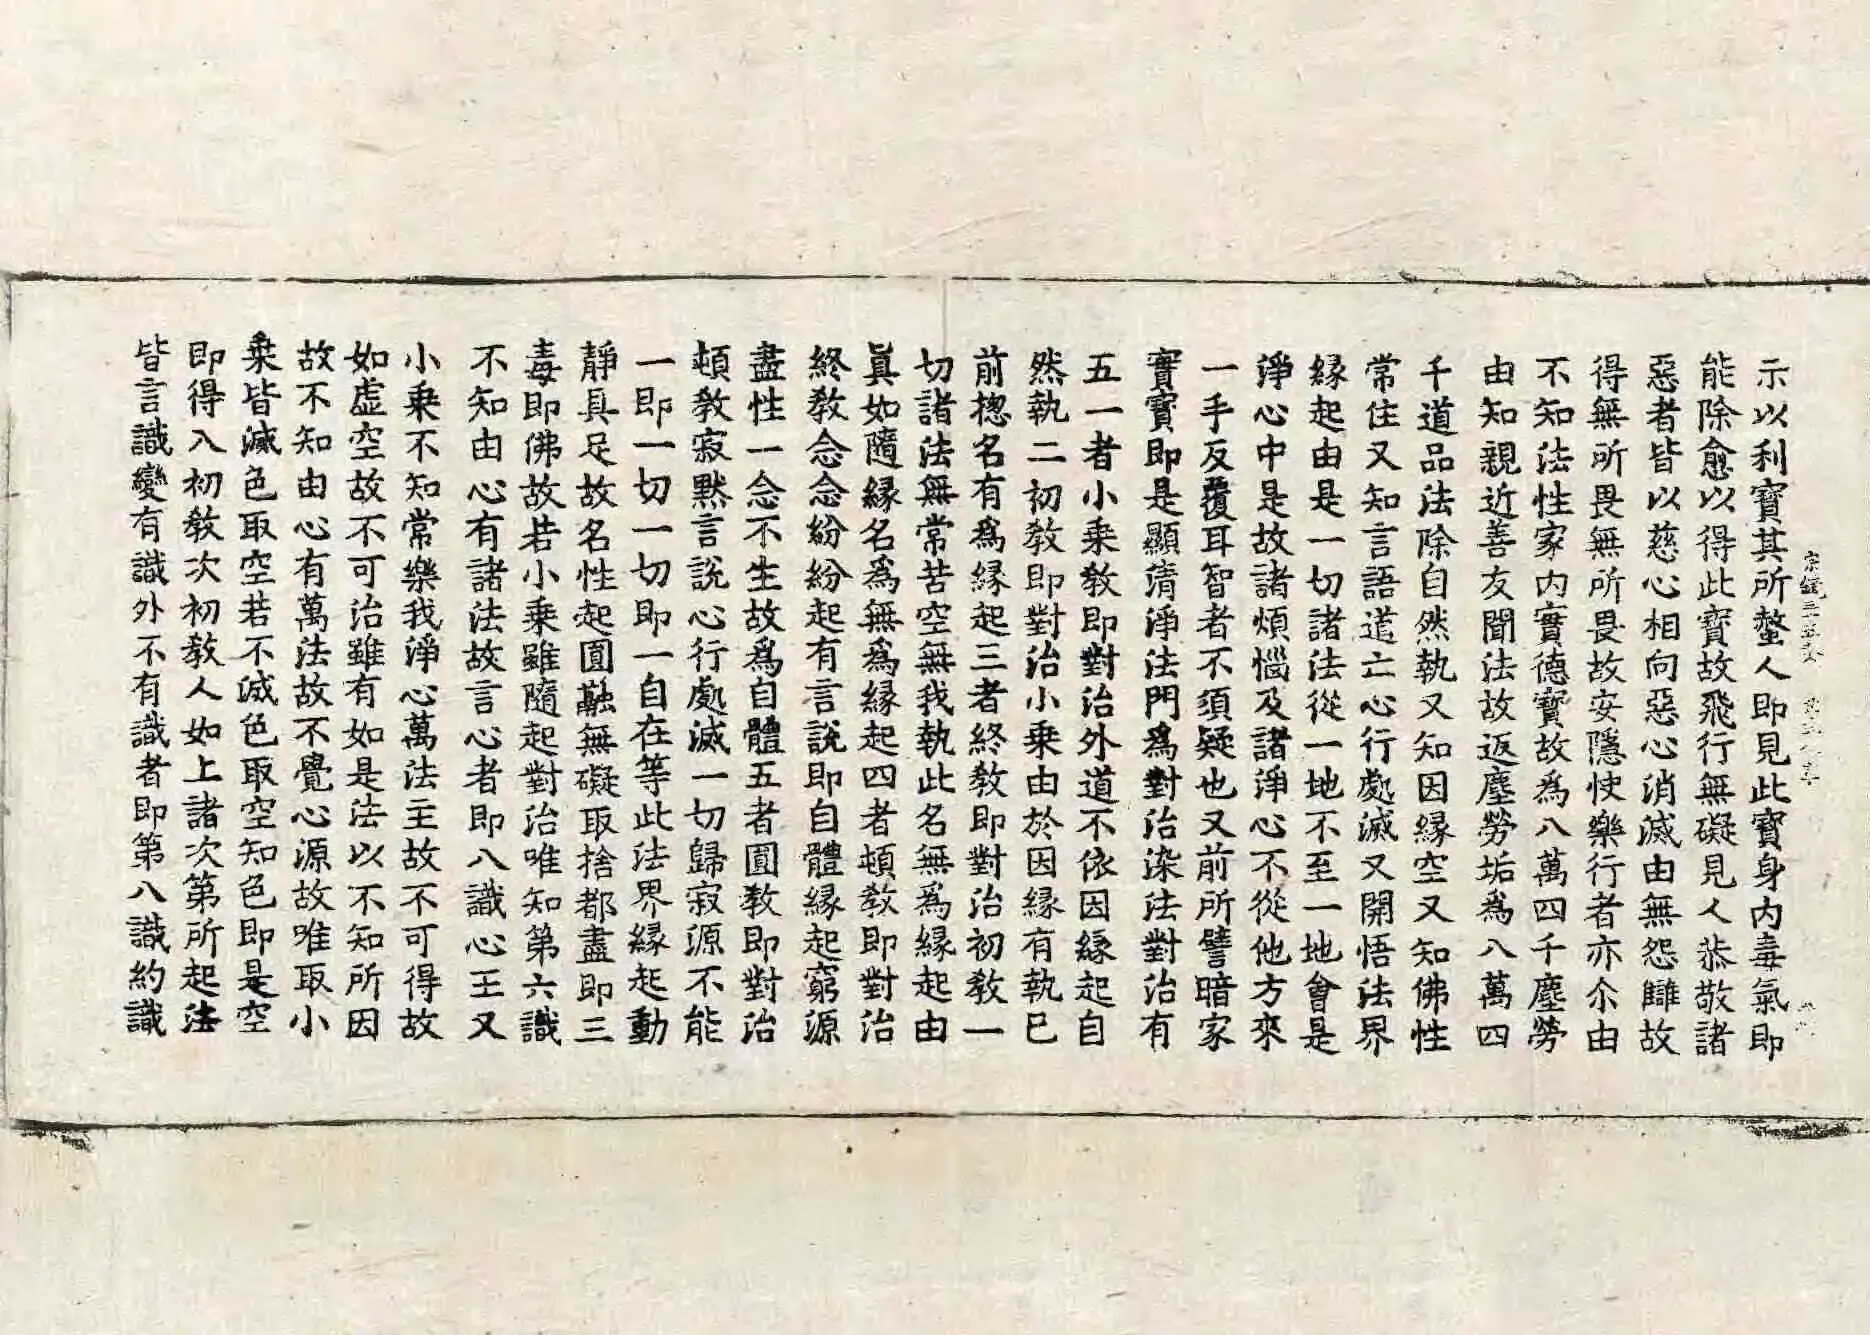 示以利寶其所螫人即見此寶身内毒氣即
能除愈以得此寶故飛行無礙見人恭敬諸
惡者皆以慈心相向惡心消滅由無怨雠故
得無所畏無所畏故安隱快樂行者亦尒由
不知法性家内實德寶故爲八萬四千塵勞
由知親近善友聞法故返塵勞垢爲八萬四
千道品法除自然執又知因縁空又知佛性
常住又知言語道亡心行處滅又開悟法界
縁起由是一切諸法從一地不至一地會是
淨心中是故諸煩惱及諸淨心不從他方來
一手反覆耳智者不須疑也又前所譬暗家
實寶即是顯清淨法門爲對治染法對治有
五一者小乗教即對治外道不依因縁起自
然執二初教即對治小乗由於因縁有執已
前摠名有爲縁起三者終教即對治初教一
切諸法無常苦空無我執此名無爲縁起由
眞如隨縁名爲無爲縁起四者頓教即對治
終教念念紛紛起有言說即自體縁起窮源
盡性一念不生故爲自體五者圓教即對治
頓教寂默言說心行處滅一切歸寂源不能
一即一切一切即一自在等此法界縁起動
靜具足故名性起圓融無礙取捨都盡即三
毒即佛故若小乗雖隨起對治唯知第六識
不知由心有諸法故言心者即八識心王又
小乗不知常樂我淨心萬法主故不可得故
如虚空故不可治雖有如是法以不知所因
故不知由心有萬法故不覺心源故唯取小
乗皆滅色取空若不滅色取空知色即是空
即得入初教次初教人如上諸次第所起法
皆言識變有識外不有識者即第八識約識